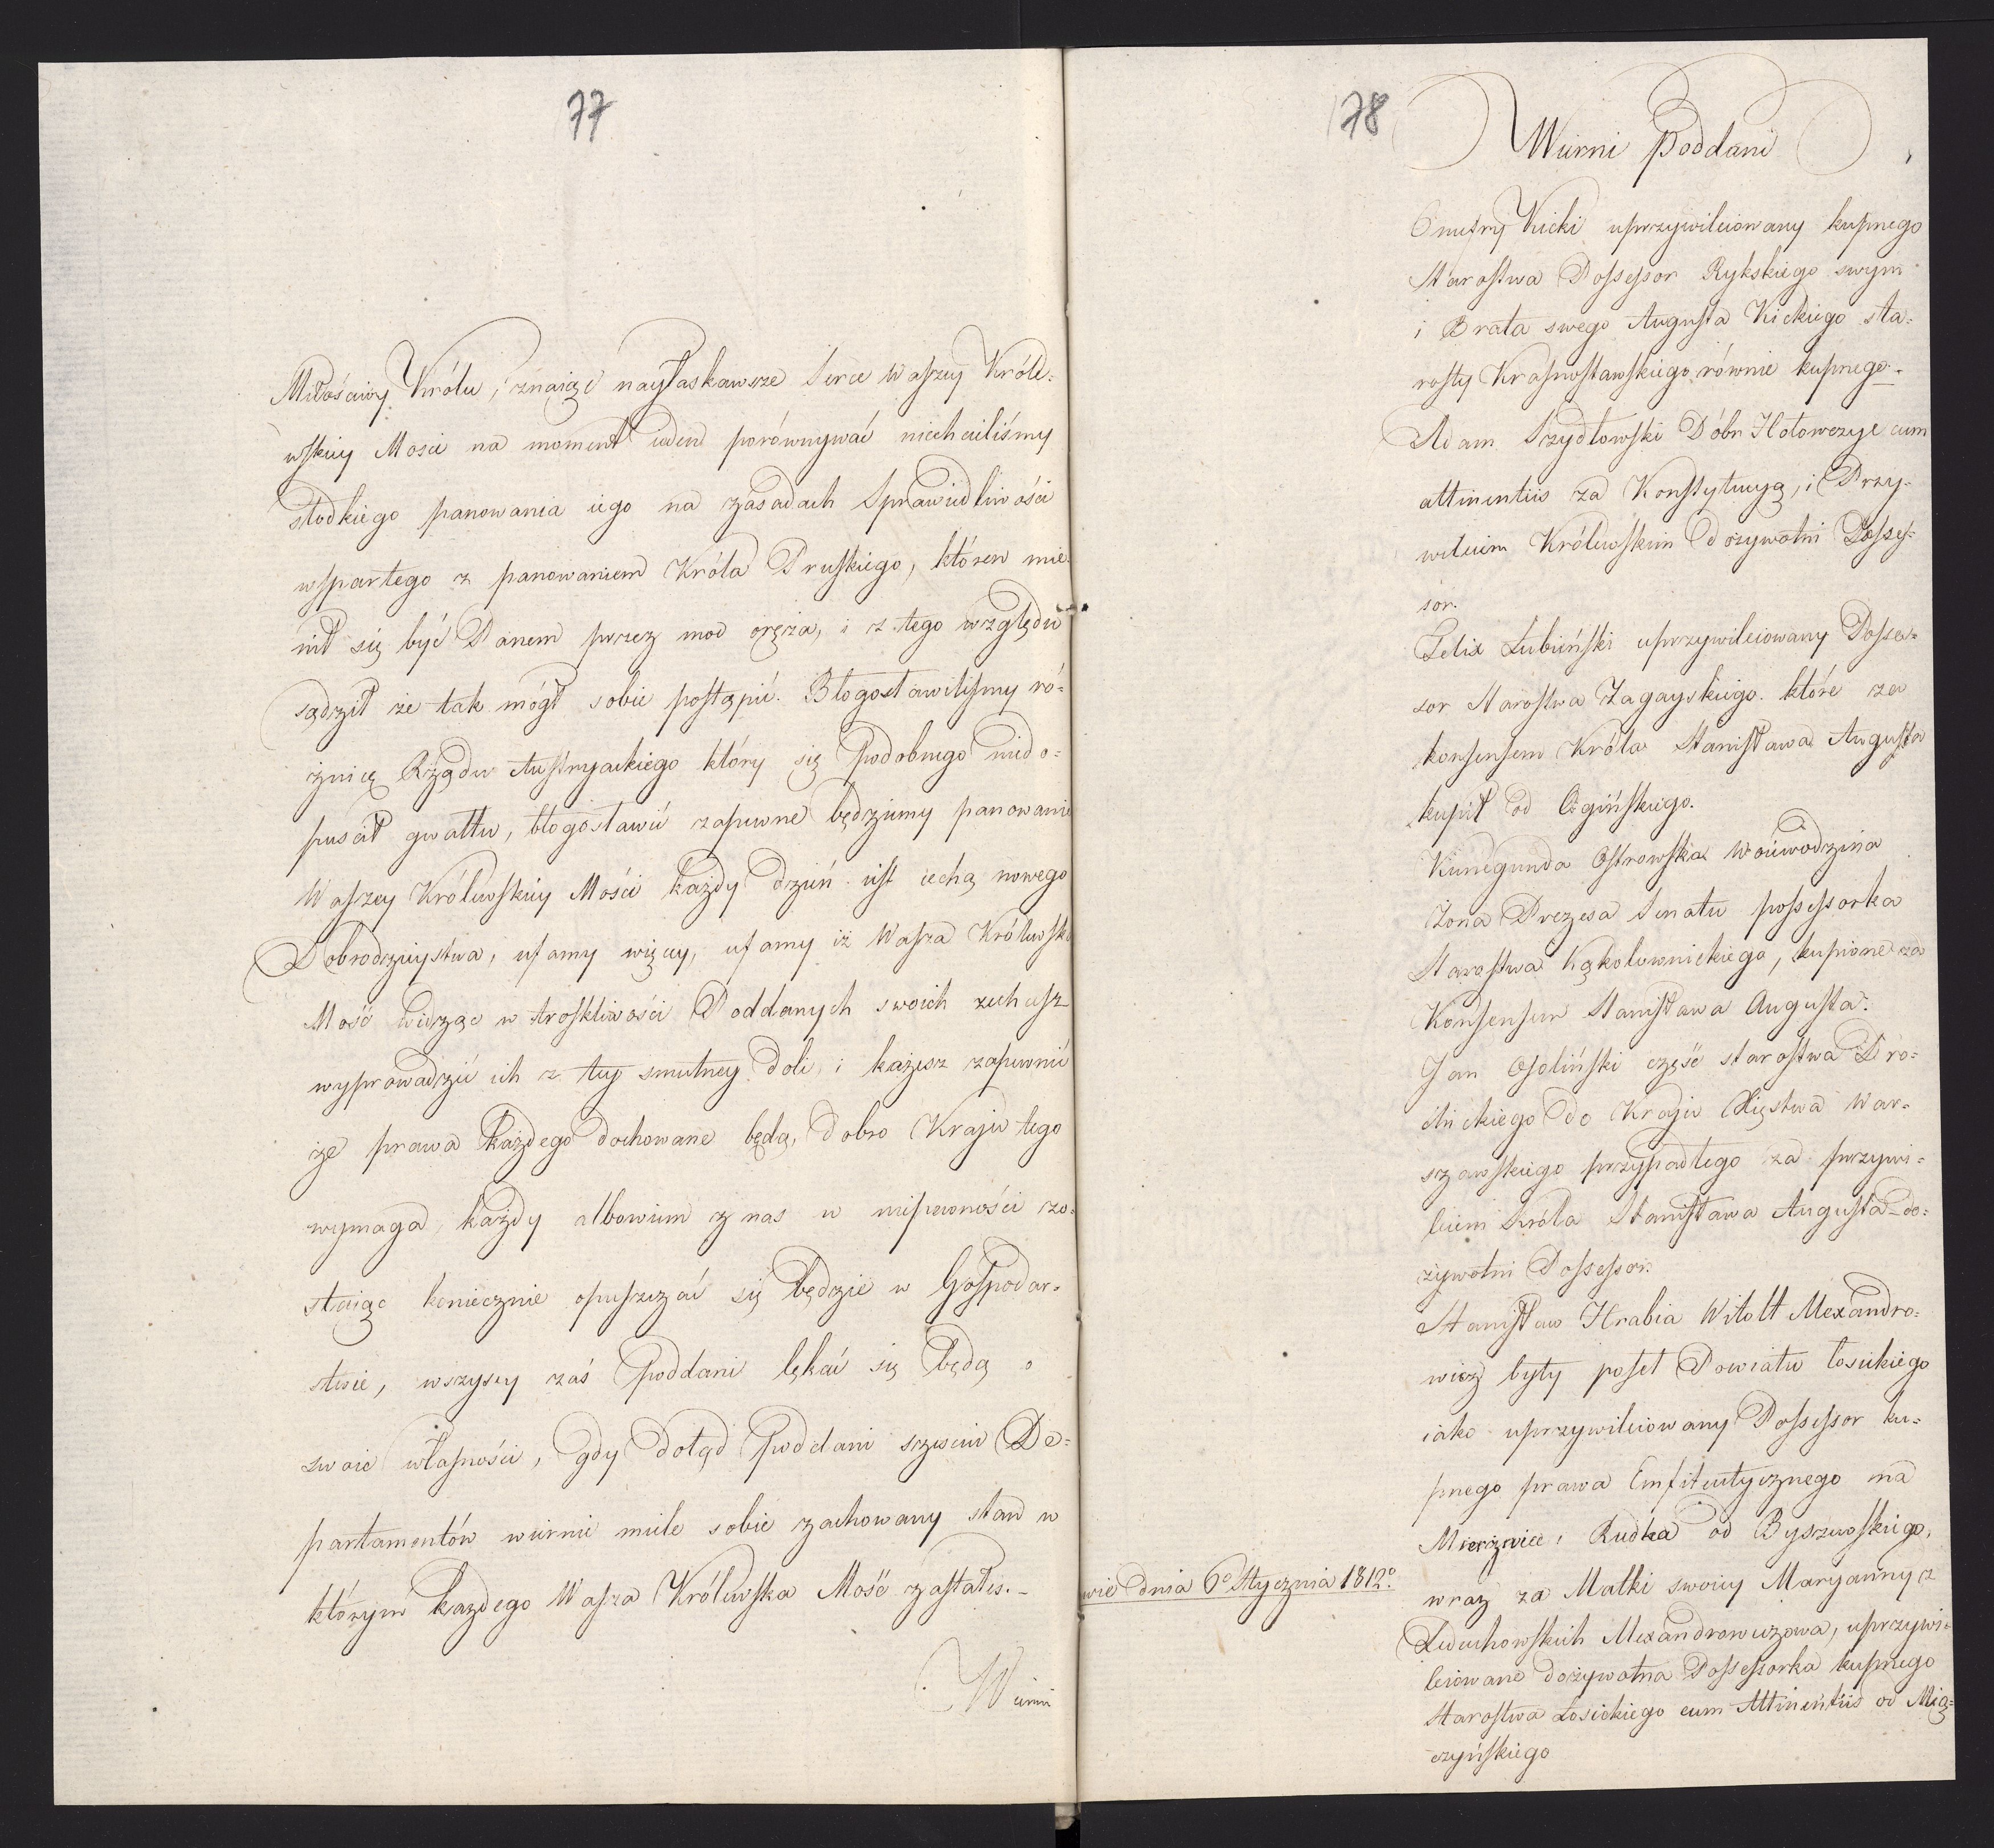 77
Miłościwy Królu, znaiąc nayłaskawsze Serce Waszey Króle-
wskiey Mosci na moment ieden porównywać niechcieliśmy
słodkiego panowania iego na zasadach Sprawiedliwości
wspartego z panowaniem Króla Pruskiego, któren mie-
nił się być Panem przez moc oręża, i z tego względu
sądził że tak mógł sobie postąpić. Błogosławiliśmy ró-
żnicę Rządu Austryackiego który się podobnego niedo-
puscił gwałtu, błogosławić zapewne będziemy panowanie
Waszey Królewskiey Mości każdy dzień iest cechą nowego
Dobrodzieystwa, ufamy więcey, ufamy iż Wasza Królewska
Mość widząc w troskliwości Poddanych swoich zechcesz
wyprowadzić ich z tey smutney doli, i każesz zapewnić
że prawa każdego dochowane będą, dobro Kraju tego
wymaga, każdy albowiem z nas w niepewności zo-
staiąc koniecznie opuszczać się będzie w Gospodar-
stwie, wszyscy zaś poddani lękać się będą o
swoie własności, gdy dotąd poddani sześciu De-
partamentów wiernie miele sobie zachowany stan w
którym każdego Wasza Królewska Mość zastałes.-
Wierni
78
Wierni Poddani
Onufry Kicki uprzywileiowany kupnego
Starostwa Possessor Rykskiego swym
i Brata swego Augusta Kickiego sta-
rosty Krasnostawskiego równie kupnego.-
Adam Szydłowski Dóbr Hołowczyc cum
attinentiis za Konstytucyą, i Przy-
wileiem Królewskim dożywotni Posses-
sor.
Felix Łubieński uprzywileiowany Posses-
sor Starostwa Zagayskiego. które za
konsensem Króla Stanisława Augusta
kupił od Ogińskiego.
Kunegunda Ostrowska Woiewodzina
Żona Prezesa Senatu possessorka
Starostwa Kąkolownickiego, kupione za
Konsensem Stanisława Augusta.
Jan Osoliński część starostwa Dro-
hickiego do Kraju Xięstwa War-
szawskiego przypadłego za przywi-
leiem Króla Stanisława Augusta do-
żywotni Possessor.
Stanisław Hrabia Witołt Alexandro-
wicz były poseł Powiatu Łosickiego
iako uprzywileiowany Possessor ku-
pnego prawa Emfiteutycznego na
Mierzwice i Rudka od Byszewskiego,
wraz za Matki swoiey Maryanny z
Leduchowskich Alexandrowiczowa, uprzywi-
leiowano dożywotna Possessorka kupnego
Starostwa Łosickiego cum Attinentiis od Mią-
czyńskiego
wie dnia 6º Stycznia 1812º.